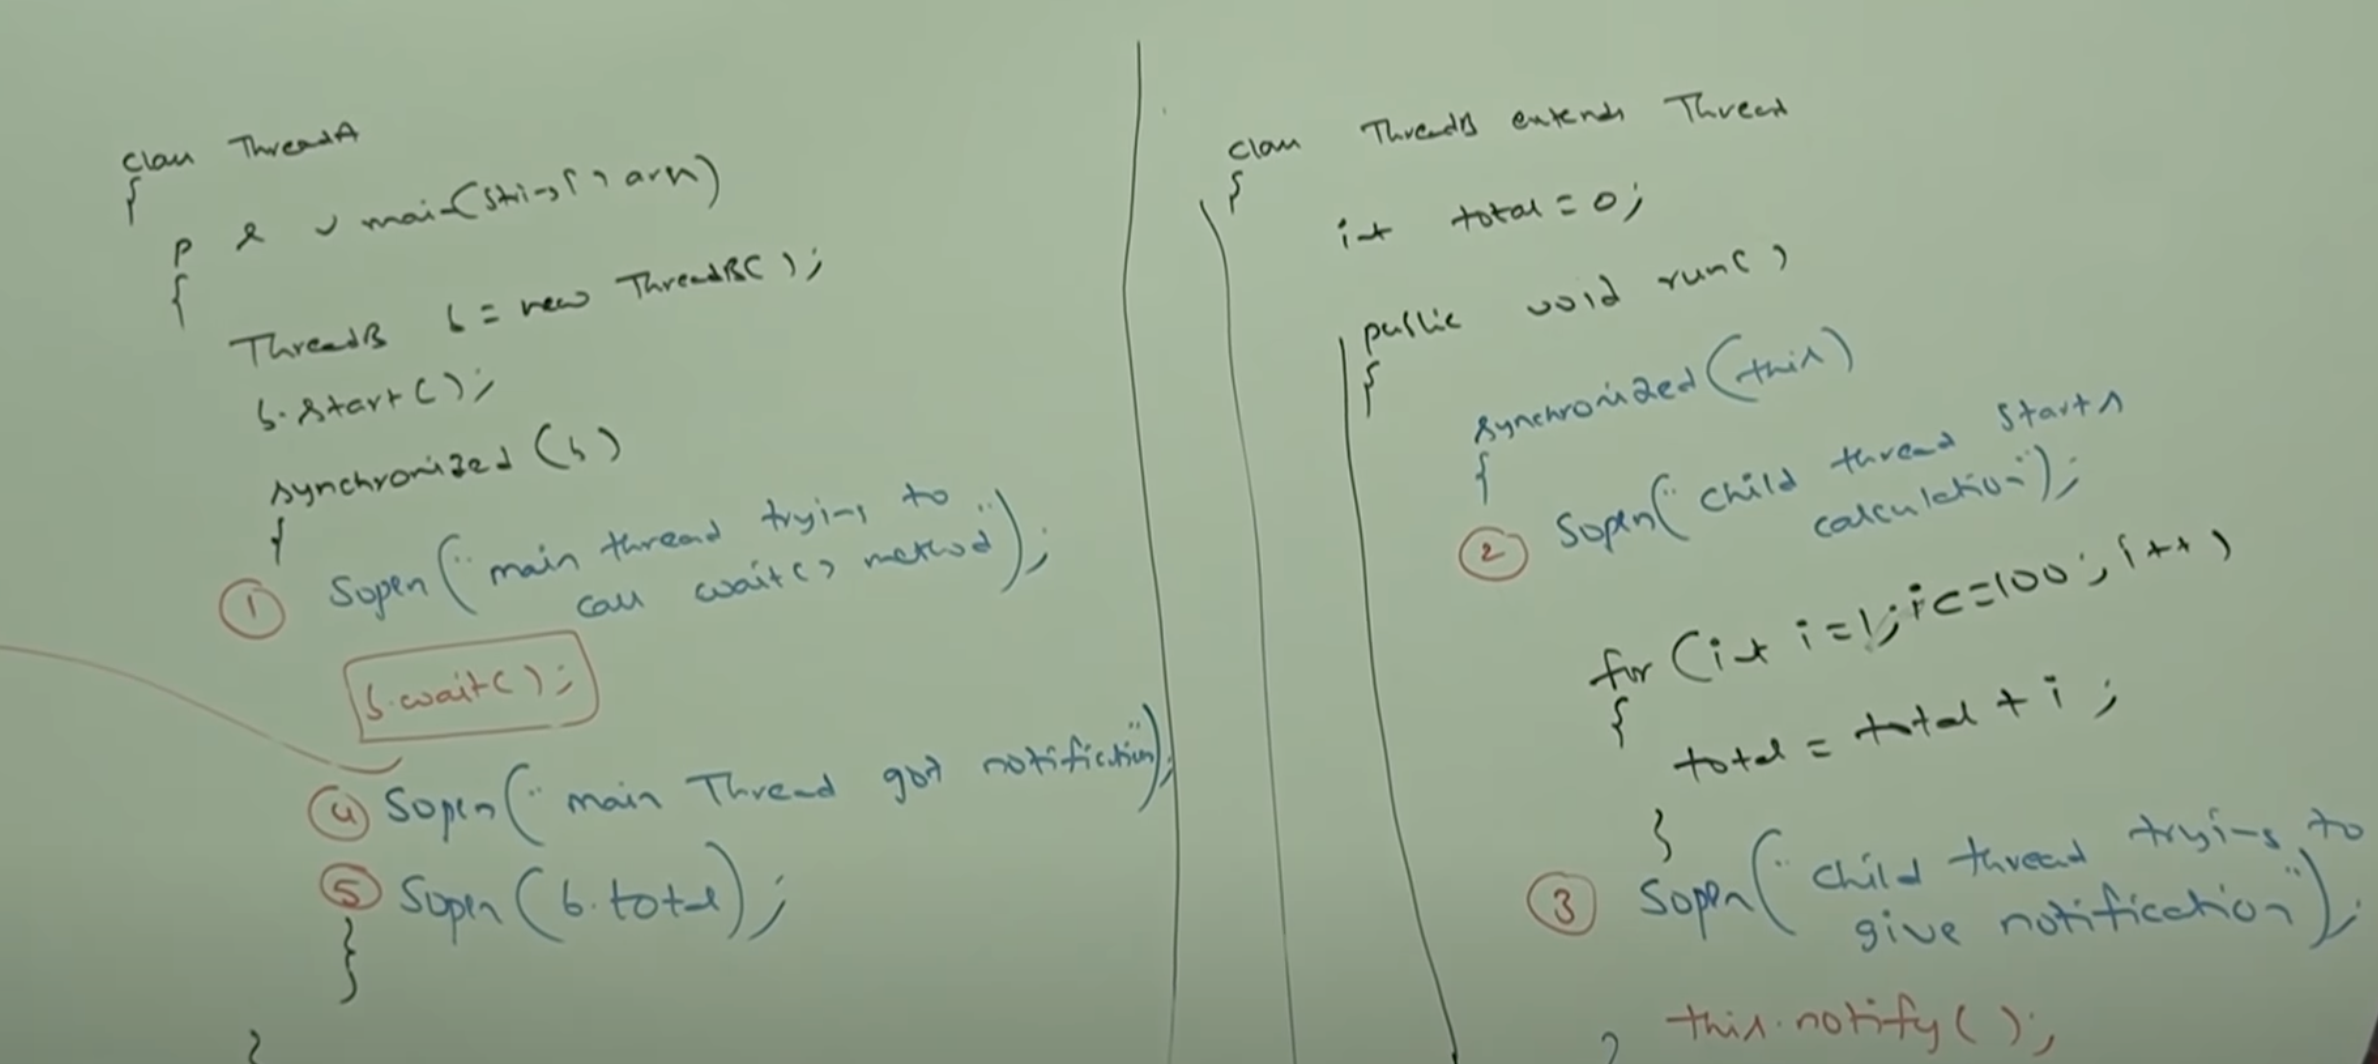 class ThreadA
{
p s v main(String[] args)
{
ThreadB b = new ThreadB();
b.start();
synchronized (b)
{
① Sopln("main thread trying to
call wait() method");
b.wait();
④ Sopln("main Thread got notification");
⑤ Sopln(b.total);
}
}
class ThreadB extends Thread
{
int total = 0;
public void run()
{
synchronized(this)
{
② Sopln("child thread starts
calculation");
for (int i=1; i<=100; i++)
{
total = total + i;
}
③ Sopln("child thread trying to
give notification");
this.notify();
}